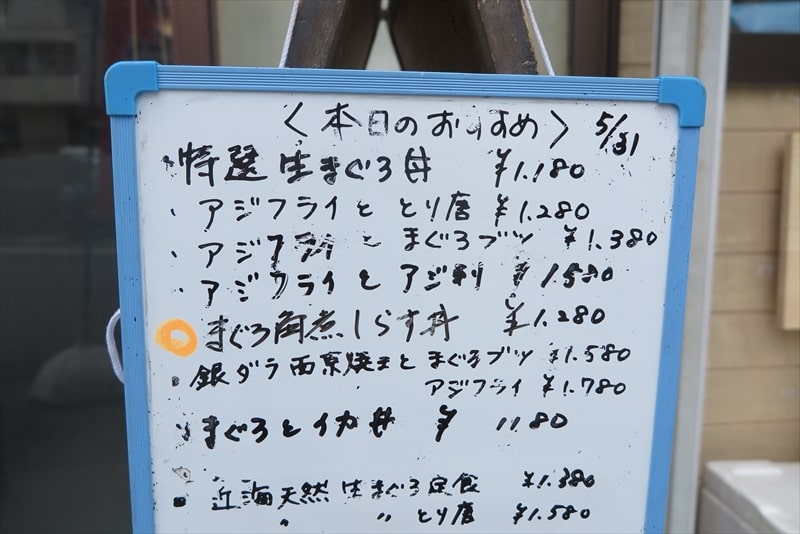 〈本日のおすすめ〉 5/31
特選生まぐろ丼 ¥1.180
・アジフライと とり唐 ¥1.280
・アジフライと まぐろブツ ¥1.380
・アジフライと アジ刺 ¥1.580
まぐろ角煮しらす丼 ¥1.280
・銀ダラ西京焼きと まぐろブツ ¥1.580
アジフライ ¥1.780
・まぐろとイカ丼 ¥1180
・近海天然 生まぐろ定食 ¥1.380
〃 〃 とり唐 ¥1.580